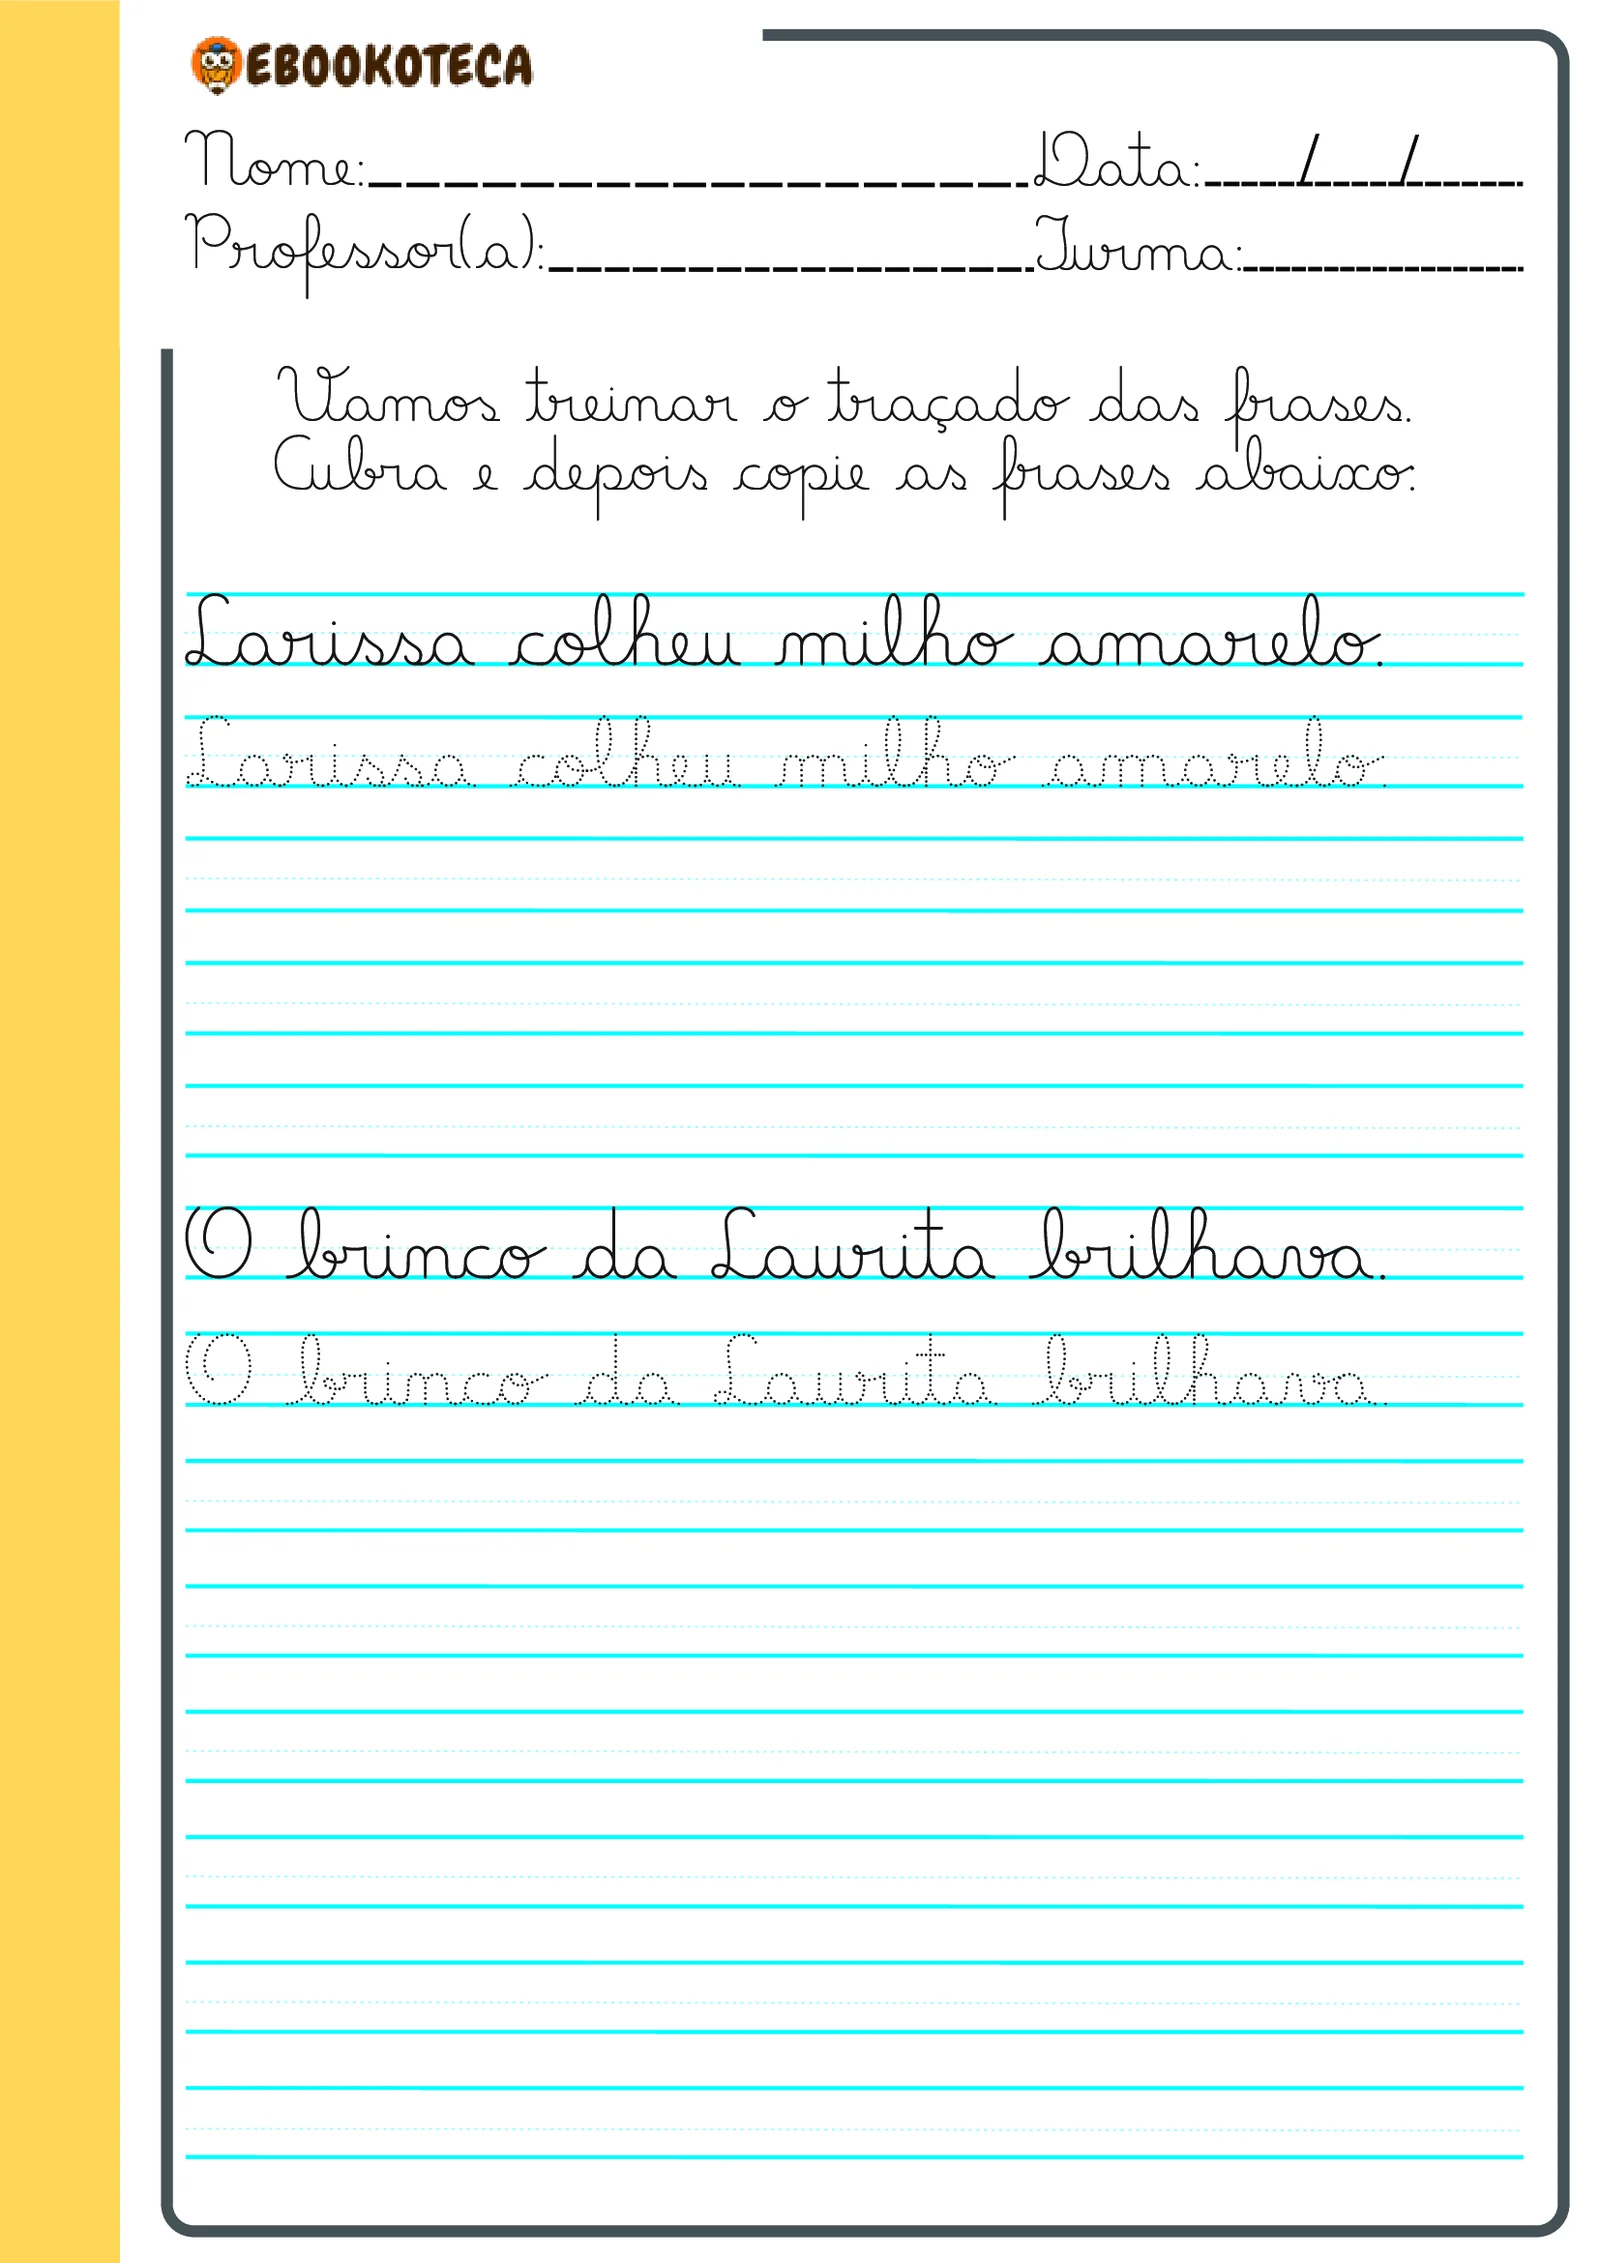 EBOOKOTECA
Nome: Data: / /
Professor(a): Turma:
Vamos treinar o traçado das frases.
Cubra e depois copie as frases abaixo:
Larissa colheu milho amarelo.
Larissa colheu milho amarelo.
O brinco da Laurita brilhava.
O brinco da Laurita brilhava.